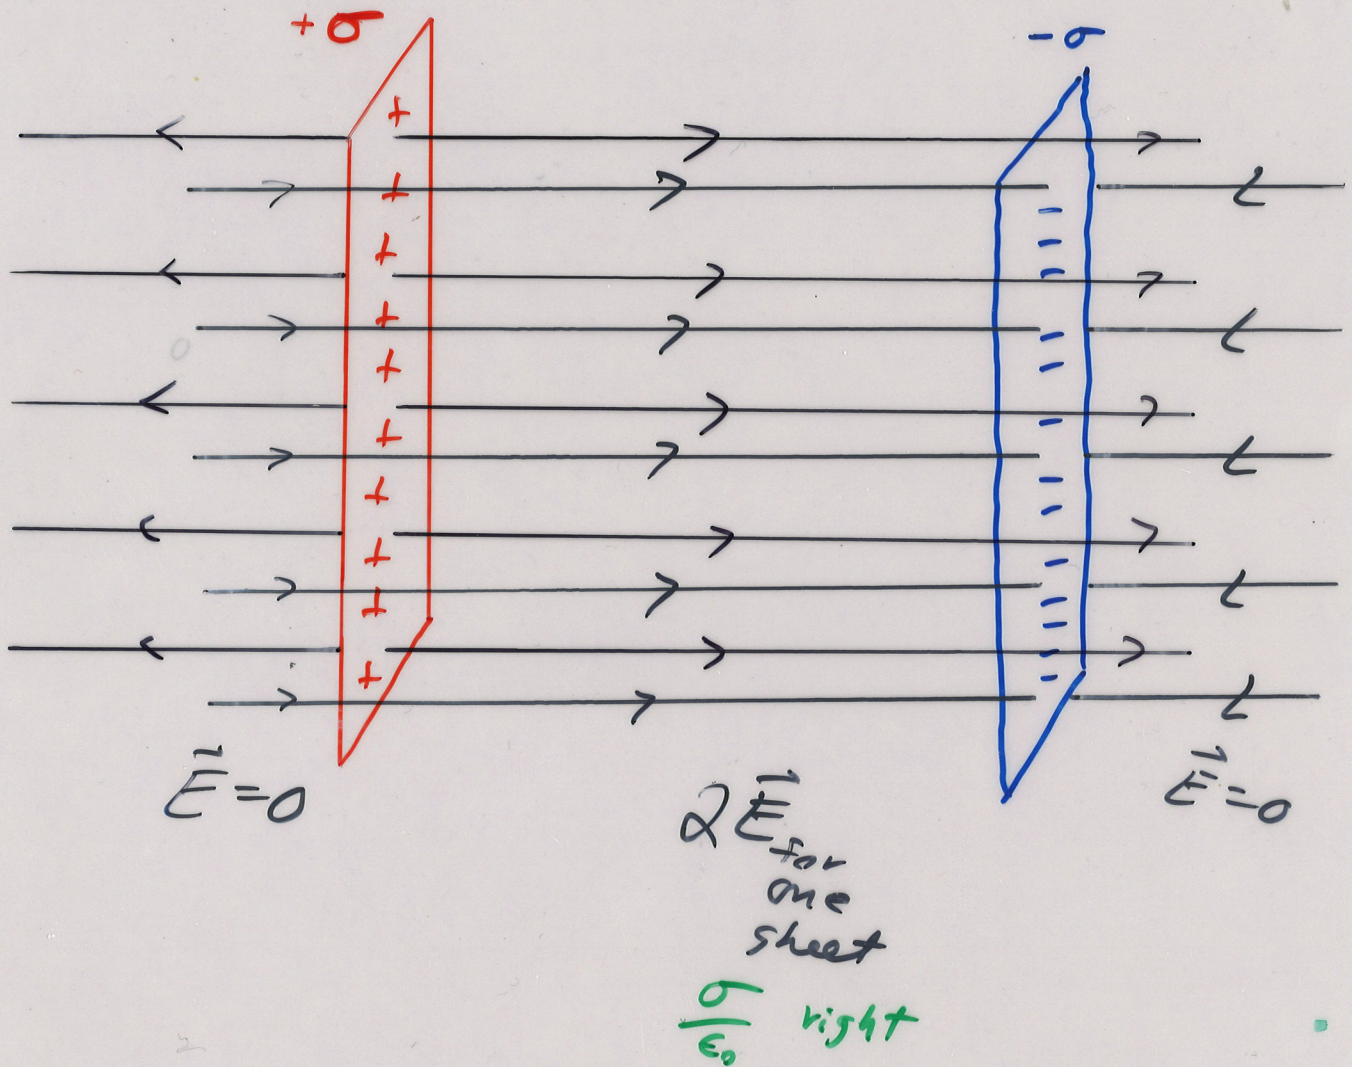 +σ
-σ
+
+
+
+
+
+
+
+
+
+
E⃗=0
2E⃗ for
one
sheet
E⃗=0
σ/ε₀ right